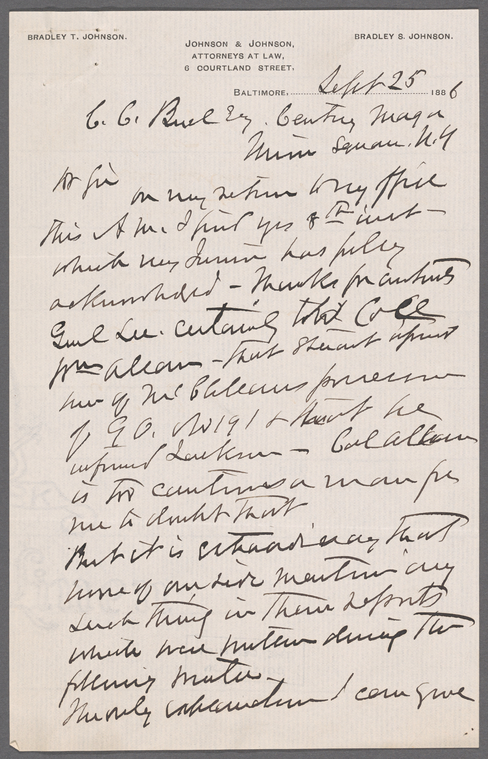 BRADLEY T. JOHNSON.
BRADLEY S. JOHNSON.
JOHNSON & JOHNSON,
ATTORNEYS AT LAW,
6 COURTLAND STREET.
BALTIMORE, Sept 25 1886
C. C. Buel Esq. Century Maga
Union Square. N.Y
Dr Sir on my return to my office
this A M. I find yrs 8th inst —
which my Junior has
acknowledged — Thanks for
Genl Lee. certainly told Col
Wm Allan — that Stuart
me of McClellans possession
of G O. No 191 & that he
informed Jackson — Col Allan
is too cautious a man for
me to doubt that
But it is extraordinary that
none of our side mention any
such thing in their reports
which were written during the
following winter —
The only explanation I can give